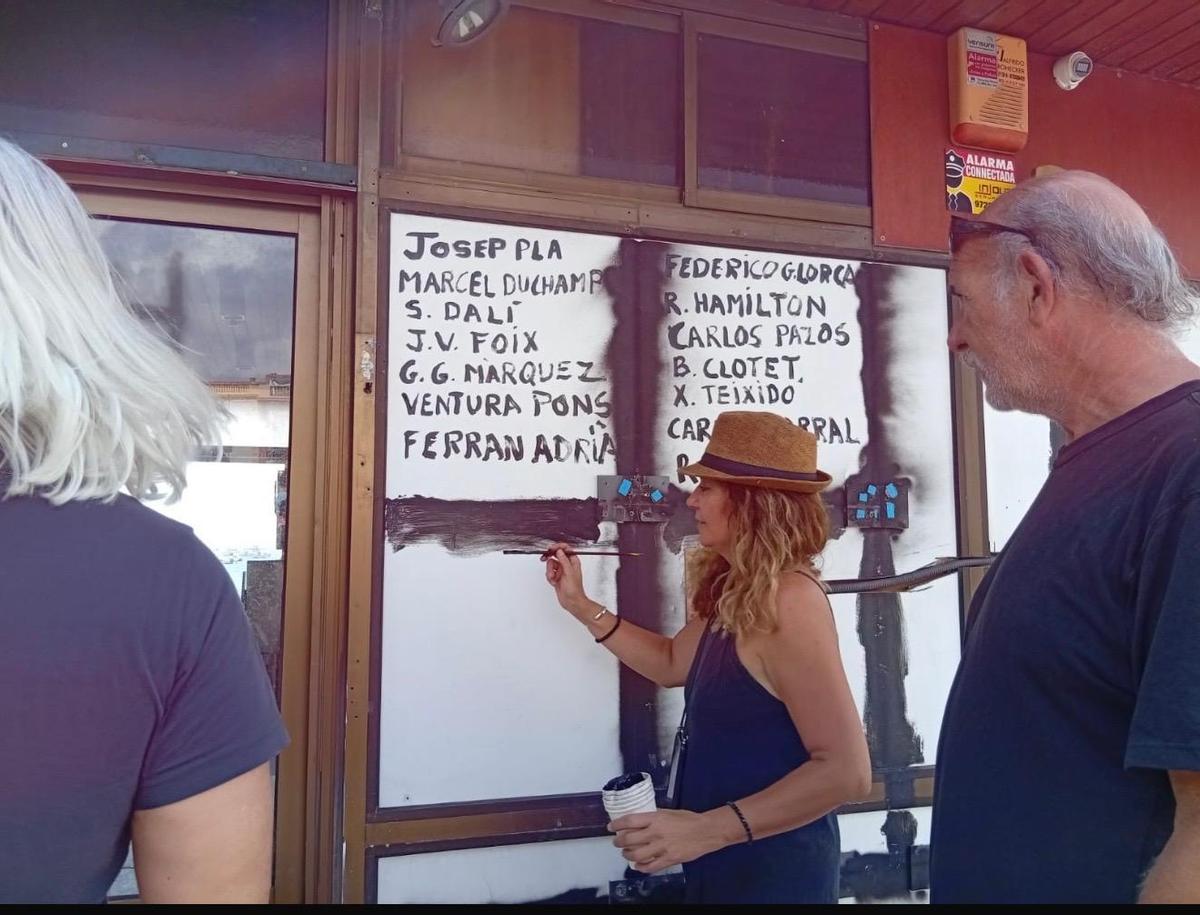 JOSEP PLA
MARCEL DUCHAMP
S. DALÍ
J.V. FOIX
G.G. MÀRQUEZ
VENTURA PONS
FERRAN ADRIÀ
FEDERICO G.LORCA
R. HAMÍLTON
CARLOS PAZOS
B. CLOTET
X. TEIXIDO
verisure
Alarma
ALARMA
CONNECTADA